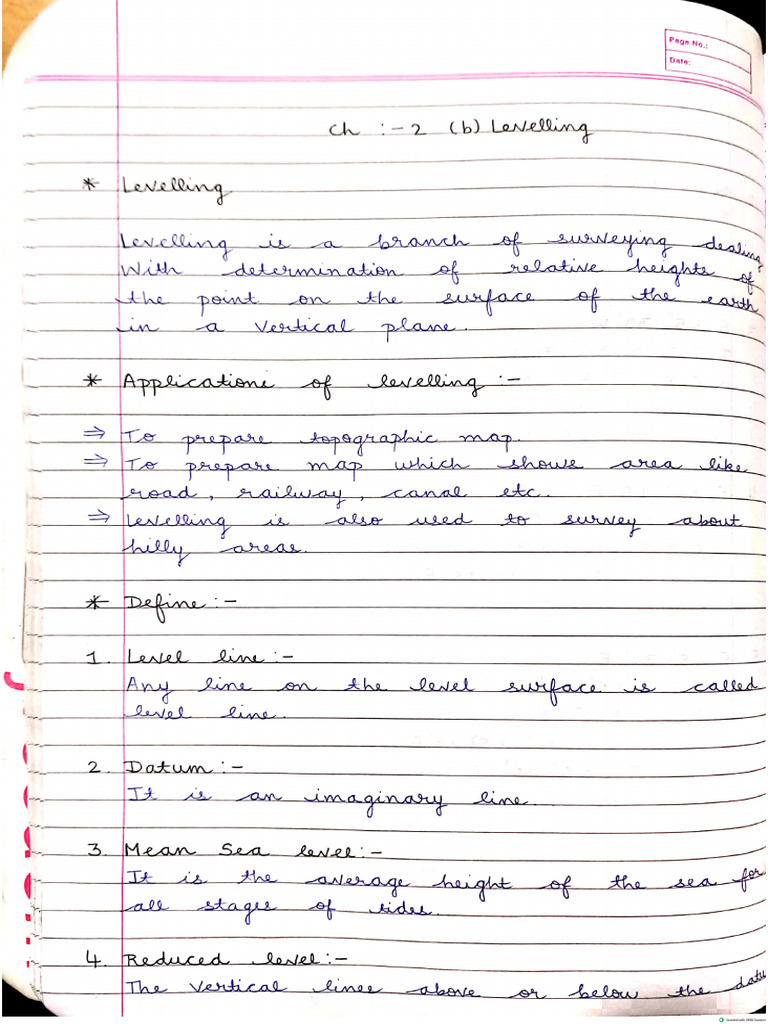 Page No.:
Date:
Ch :- 2 (b) Levelling
* Levelling
Levelling is a branch of surveying dealing
With determination of relative heights of
the point on the surface of the earth
in a vertical plane.
* Applications of levelling :-
⇒ To prepare topographic map.
⇒ To prepare map which shows area like
road, railway, canal etc.
⇒ Levelling is also used to survey about
hilly areas.
* Define :-
1. Level line :-
Any line on the level surface is called
level line.
2. Datum :-
It is an imaginary line.
3. Mean Sea level :-
It is the average height of the sea for
all stages of tides.
4. Reduced level :-
The vertical lines above or below the